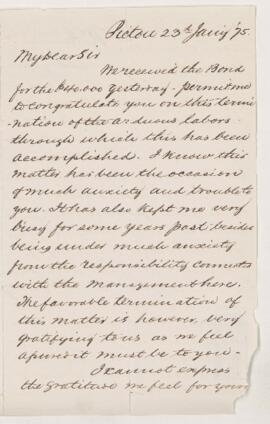 Pictou 23d Jany '75.
My dear Sir
We received the Bond
for the $40.000 yesterday - permit me
to congratulate you on this termi
-nation of the arduous labors
through which this has been
accomplished. I know this
matter has been the occasion
of much anxiety and trouble to
you. It has also kept me very
busy for some years past besides
being under much anxiety
from the responsibility connected
with the management here.
The favorable termination of
this matter is however, very
gratifying to us as we feel
assured it must be to you -
I cannot express
the gratitude we feel for your